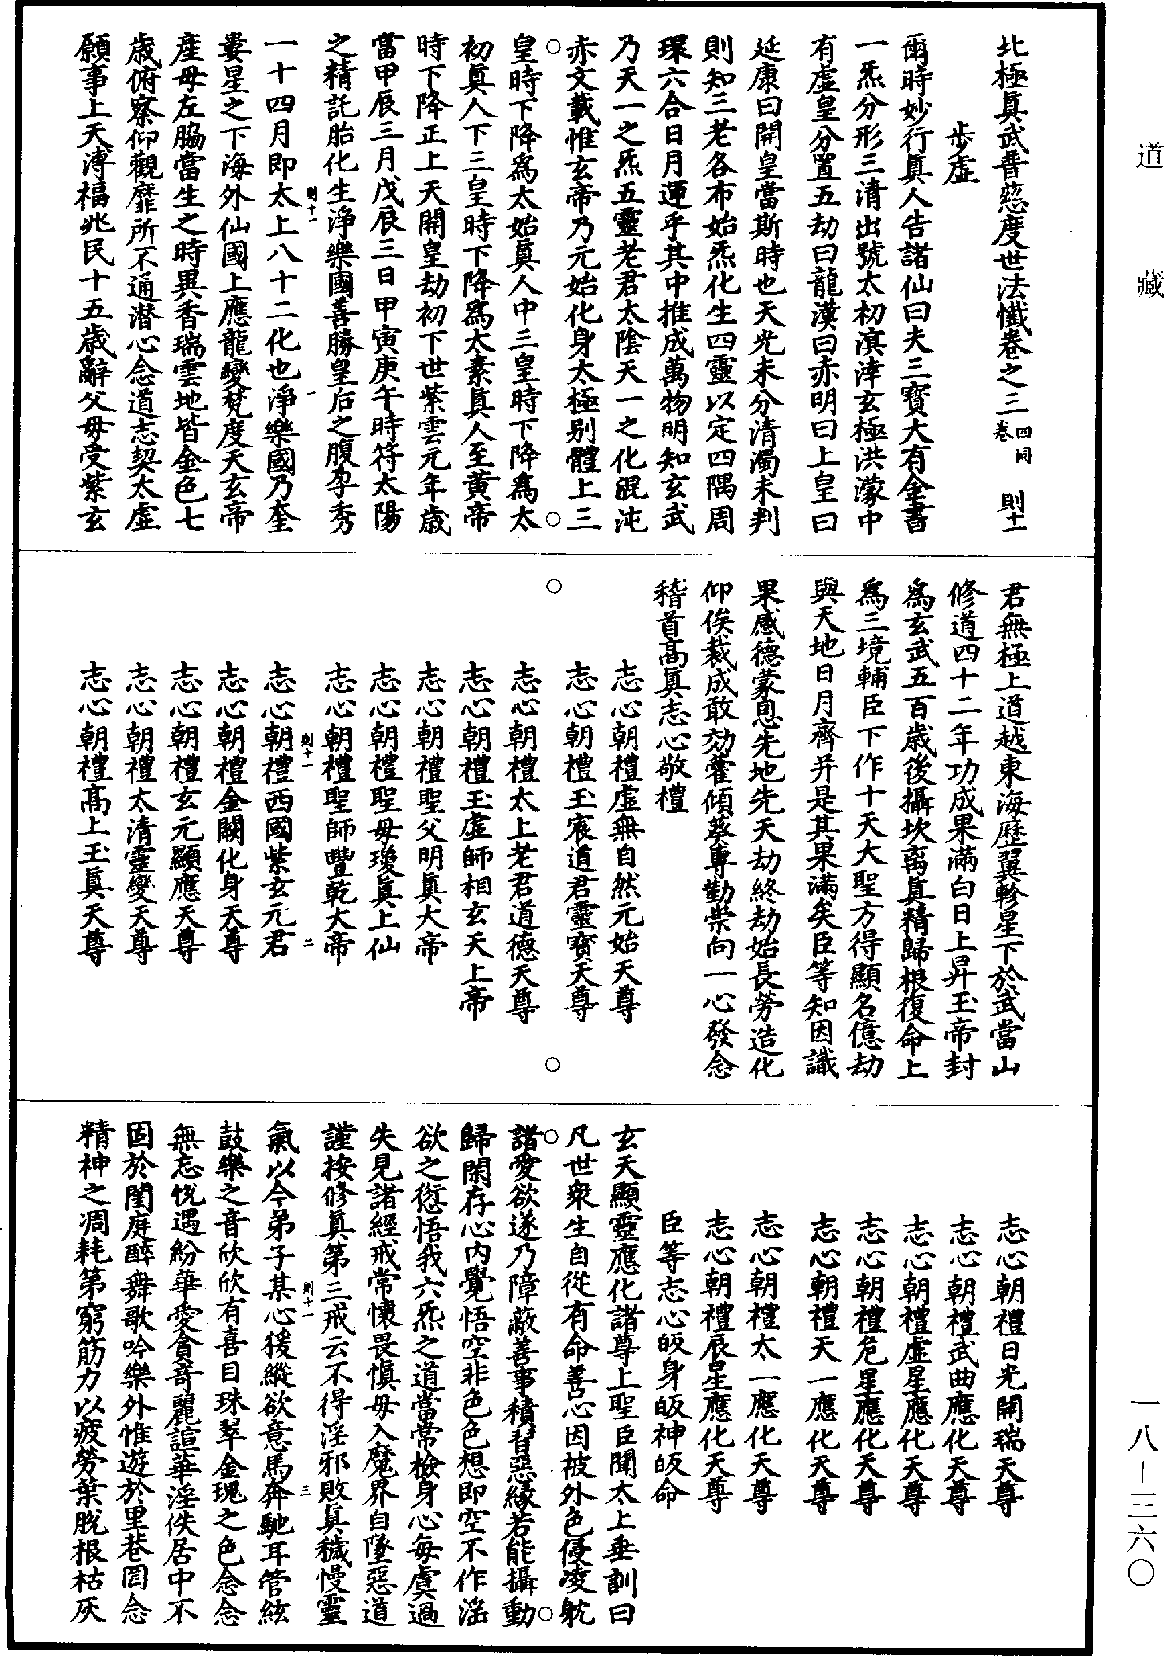 道藏
北極真武普慈度世法懺卷之三 四同卷 則十一
步虛
爾時妙行真人告諸仙曰夫三寶大有金書
一炁分形三清出號太初溟涬玄極洪濛中
有虛皇分置五劫曰龍漢曰赤明曰上皇曰
延康曰開皇當斯時也天光未分清濁未判
則知三老各布始炁化生四靈以定四隅周
環六合日月運乎其中推成萬物明知玄武
乃天一之炁五靈老君太陰天一之化混沌
赤文載惟玄帝乃元始化身太極别體上三
皇時下降爲太始真人中三皇時下降爲太
初真人下三皇時下降爲太素真人至黄帝
時下降正上天開皇劫初下世紫雲元年歲
當甲辰三月戊辰三日甲寅庚午時符太陽
之精託胎化生淨樂國善勝皇后之腹孕秀
一十四月即太上八十二化也淨樂國乃奎
婁星之下海外仙國上應龍變梵度天玄帝
産母左脇當生之時異香瑞雲地皆金色七
歲俯察仰觀靡所不通潛心念道志契太虛
願事上天溥福兆民十五歲辭父母受紫玄
則十一 一
君無極上道越東海歷翼軫星下於武當山
修道四十二年功成果滿白日上昇玉帝封
爲玄武五百歲後攝坎離真精歸根復命上
爲三境輔臣下作十天大聖方得顯名億劫
與天地日月齊并是其果滿矣臣等知因識
果感德蒙恩先地先天劫終劫始長勞造化
仰俟裁成敢効藿傾葵專勤崇向一心發念
稽首高真志心敬禮
志心朝禮虛無自然元始天尊
志心朝禮玉宸道君靈寶天尊
志心朝禮太上老君道德天尊
志心朝禮玉虛師相玄天上帝
志心朝禮聖父明真大帝
志心朝禮聖母瓊真上仙
志心朝禮聖師豐乾大帝
志心朝禮西國紫玄元君
志心朝禮金闕化身天尊
志心朝禮玄元顯應天尊
志心朝禮太清靈變天尊
志心朝禮高上玉真天尊
則十一 二
志心朝禮日光開瑞天尊
志心朝禮武曲應化天尊
志心朝禮虛星應化天尊
志心朝禮危星應化天尊
志心朝禮天一應化天尊
志心朝禮太一應化天尊
志心朝禮辰星應化天尊
臣等志心皈身皈神皈命
玄天顯靈應化諸尊上聖臣聞太上垂訓曰
凡世衆生自從有命善心因被外色侵凌躭
諸愛欲遂乃障蔽善事積習惡緣若能攝動
歸閑存心内覺悟空非色色想即空不作滛
欲之愆悟我六炁之道當常檢身心每虞過
失見諸經戒常懷畏愼毋入魔界自墜惡道
謹按修真第三戒云不得淫邪敗真穢慢靈
氣以今弟子某心猿縱欲意馬奔馳耳管絃
鼓樂之音欣欣有喜目珠翠金瑰之色念念
無忘恱遇紛華愛貪奇麗諠華淫佚居中不
固於閨庭醉舞歌吟樂外惟遊於里巷罔念
精神之凋耗第窮筋力以疲勞葉脫根枯灰
則十一 三
一八—三六〇